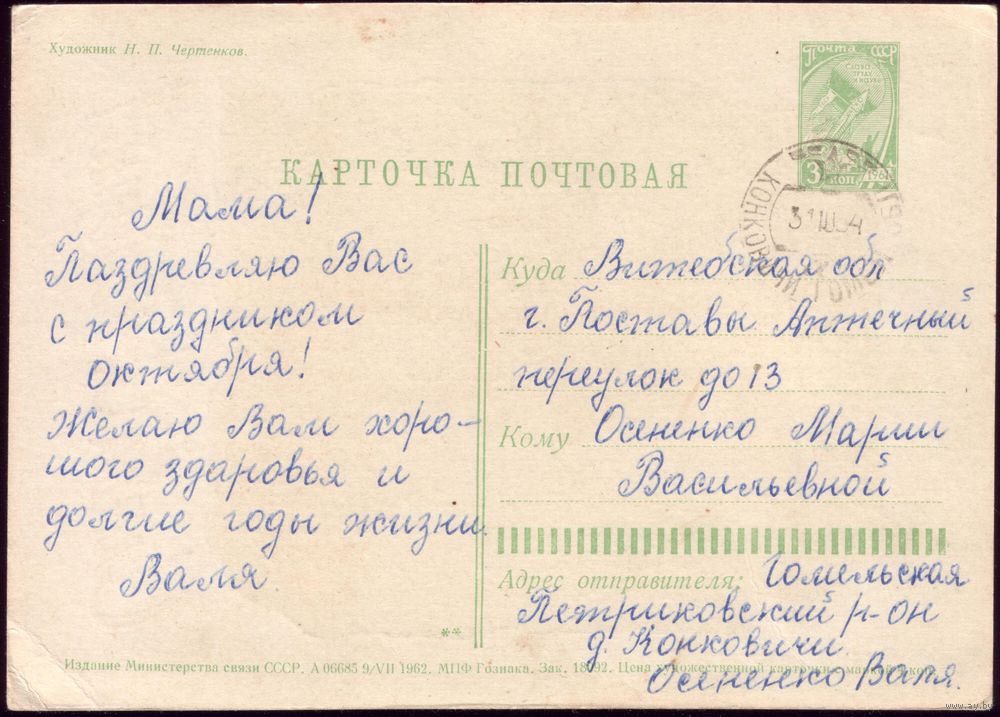 Художник Н. П. Чертенков.
Почта СССР
СЛАВА
ТРУДУ
И НАУКЕ
3 коп.
1961
КАРТОЧКА ПОЧТОВАЯ
Мама!
Паздревляю Вас
с праздником
октября!
Желаю Вам хоро-
шого здаровья и
долгие годы жизни.
Валя.
Куда Витебская обл
г. Поставы Аптечный
переулок до 13
Кому Осененко Марии
Васильевной
Адрес отправителя: Гомельская
Петриковский р-он
д. Конковичи
Осененко Валя.
**
Издание Министерства связи СССР. А 06685 9/VII 1962. МПФ Гознака. Зак. 18092. Цена художественной карточки с маркой коп.
www.ay.by